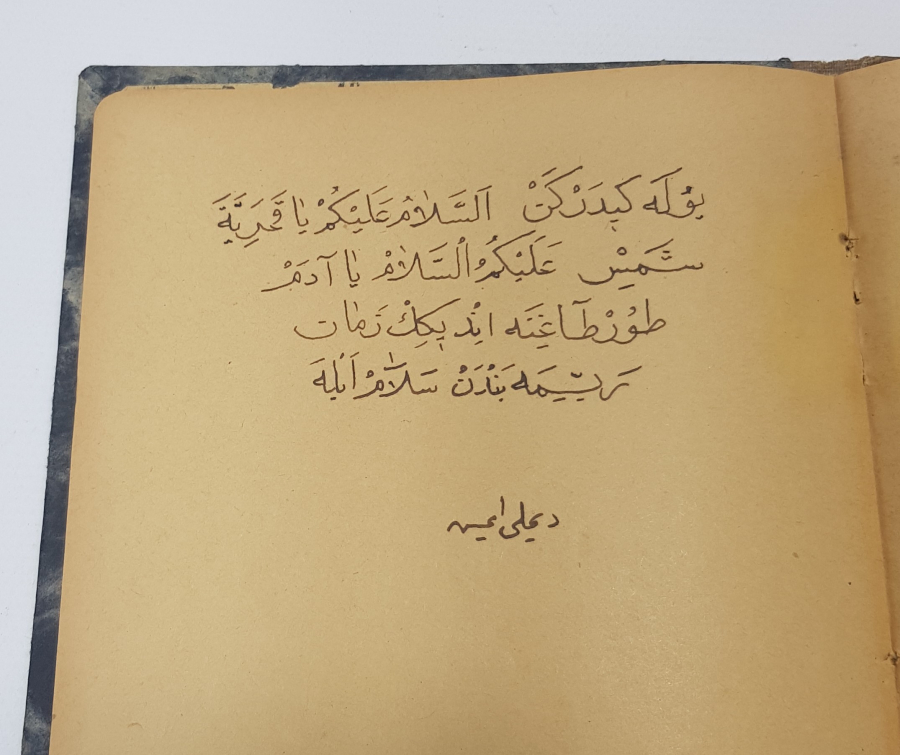 يوُلَه كيدَرْكَنْ اَلسَّلَامُ عَلَيْكُمْ يَا قَمَرِيَّةَ
شَمِيسْ عَلَيْكُمُ السَّلَامْ يَا آدَمْ
طوُرْطَاغِنَه انِْديكِكْ زَمَان
رَبِّيمَه بَنْدَنْ سَلَامْ اَيْلَه